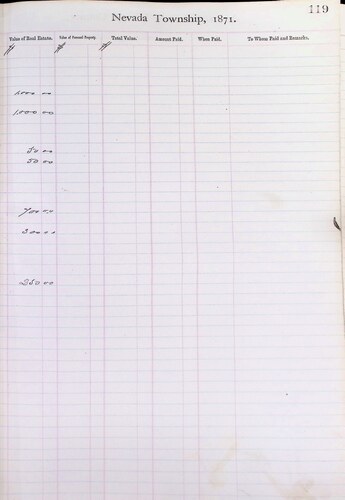 119
Nevada Township, 1871.
Value of Real Estates. Value of Personal Property. Total Value. Amount Paid. When Paid. To Whom Paid and Remarks.
1000 00
1000 00
50 00
50 00
700 00
300 00
250 00